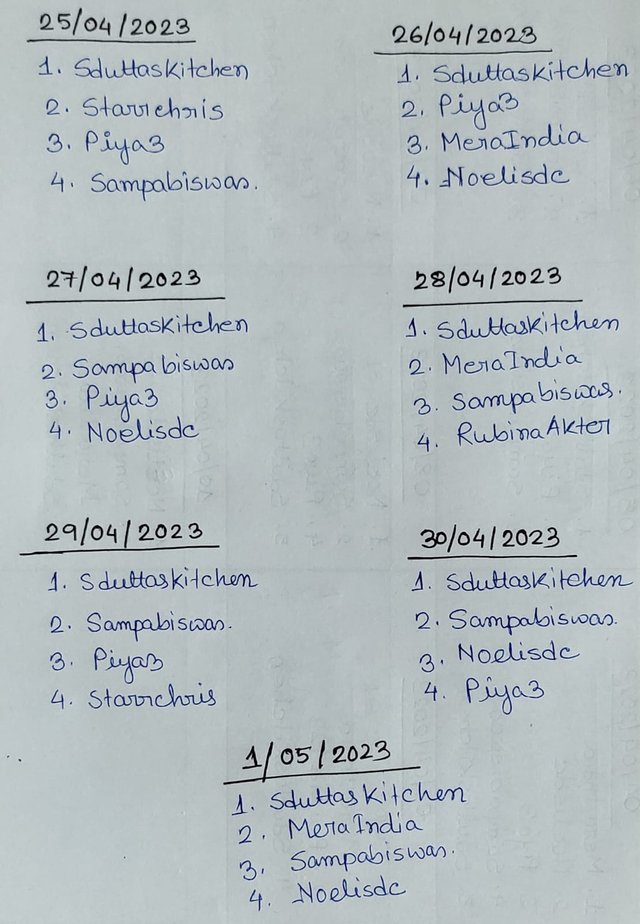 25/04/2023
1. Sduttaskitchen
2. Starrchris
3. Piya3
4. Sampabiswas.
26/04/2023
1. Sduttaskitchen
2. Piya3
3. MeraIndia
4. Noelisdc
27/04/2023
1. Sduttaskitchen
2. Sampabiswas
3. Piya3
4. Noelisdc
28/04/2023
1. Sduttaskitchen
2. MeraIndia
3. Sampabiswas.
4. RubinaAkter
29/04/2023
1. Sduttaskitchen
2. Sampabiswas.
3. Piya3
4. Starrchris
30/04/2023
1. Sduttaskitchen
2. Sampabiswas.
3. Noelisdc
4. Piya3
1/05/2023
1. Sduttaskitchen
2. MeraIndia
3. Sampabiswas.
4. Noelisdc